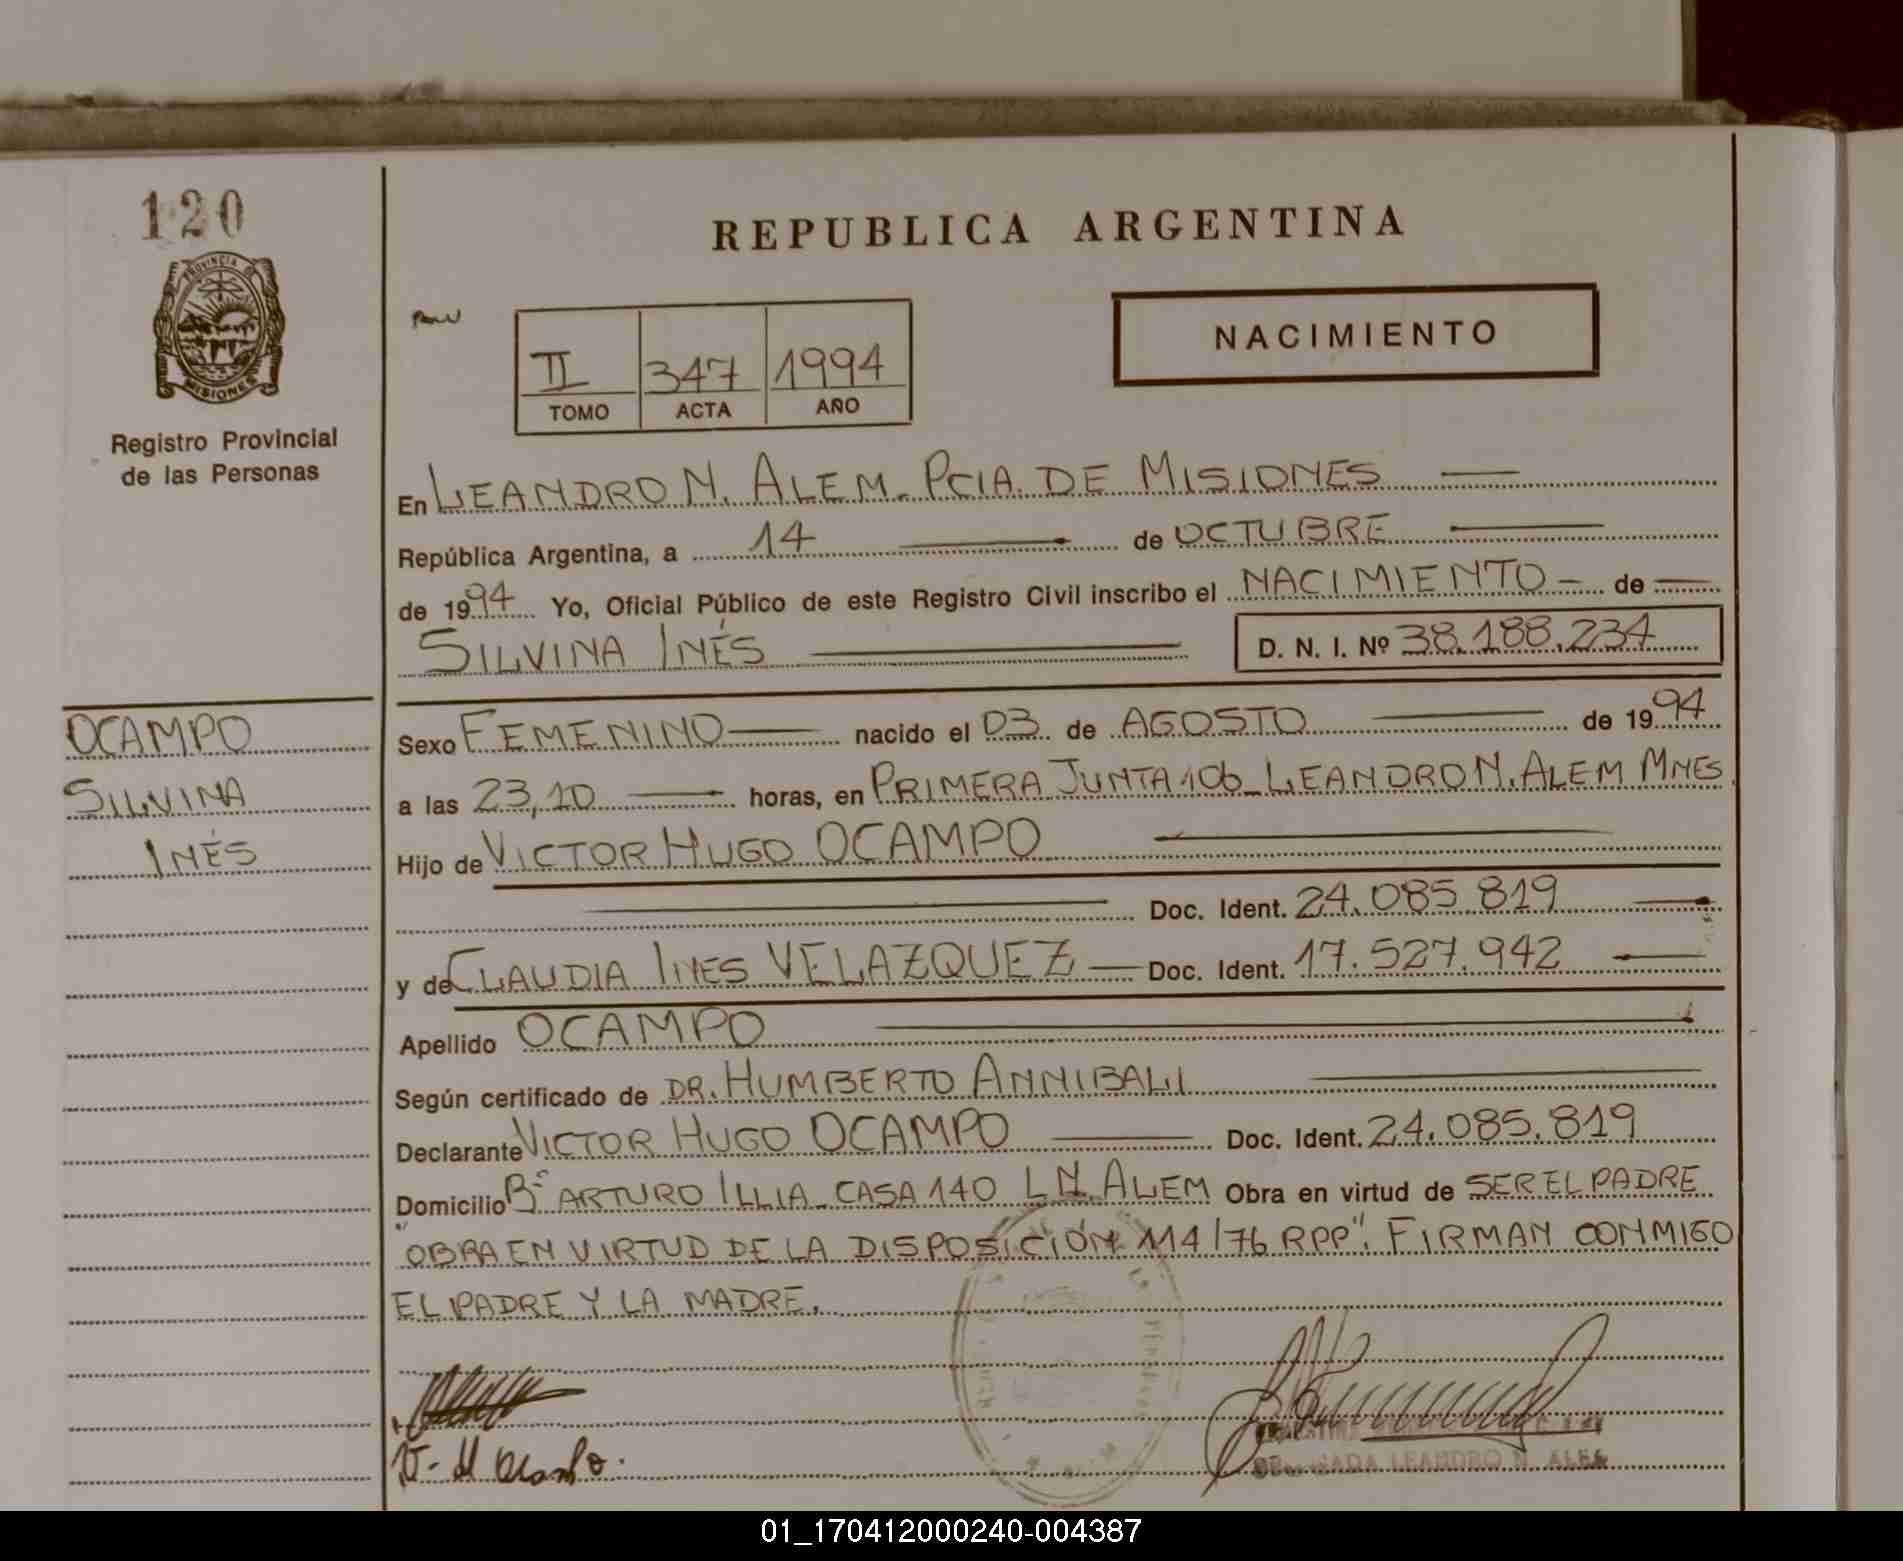 120
PROVINCIA DE
MISIONES
Registro Provincial
de las Personas
OCAMPO
SILVINA
INÉS
REPUBLICA ARGENTINA
II 347 1994
TOMO ACTA AÑO
NACIMIENTO
En LEANDRO N. ALEM. PCIA. DE MISIONES
República Argentina, a 14 de OCTUBRE
de 1994 Yo, Oficial Público de este Registro Civil inscribo el NACIMIENTO de
SILVINA INÉS D. N. I. Nº 38.188.234
Sexo FEMENINO nacido el 03 de AGOSTO de 1994
a las 23,10 horas, en PRIMERA JUNTA 106_ LEANDRO N. ALEM MNES
Hijo de VICTOR HUGO OCAMPO
Doc. Ident. 24.085.819
y de CLAUDIA INES VELAZQUEZ Doc. Ident. 17.527.942
Apellido OCAMPO
Según certificado de DR. HUMBERTO ANNIBALI
Declarante VICTOR HUGO OCAMPO Doc. Ident. 24.085.819
Domicilio Bº ARTURO ILLIA_ CASA 140 L.N. ALEM Obra en virtud de SER EL PADRE
"OBRA EN VIRTUD DE LA DISPOSICIÓN 114/76 RPP". FIRMAN CONMIGO
EL PADRE Y LA MADRE.
LEANDRO N. ALEM
01_170412000240-004387